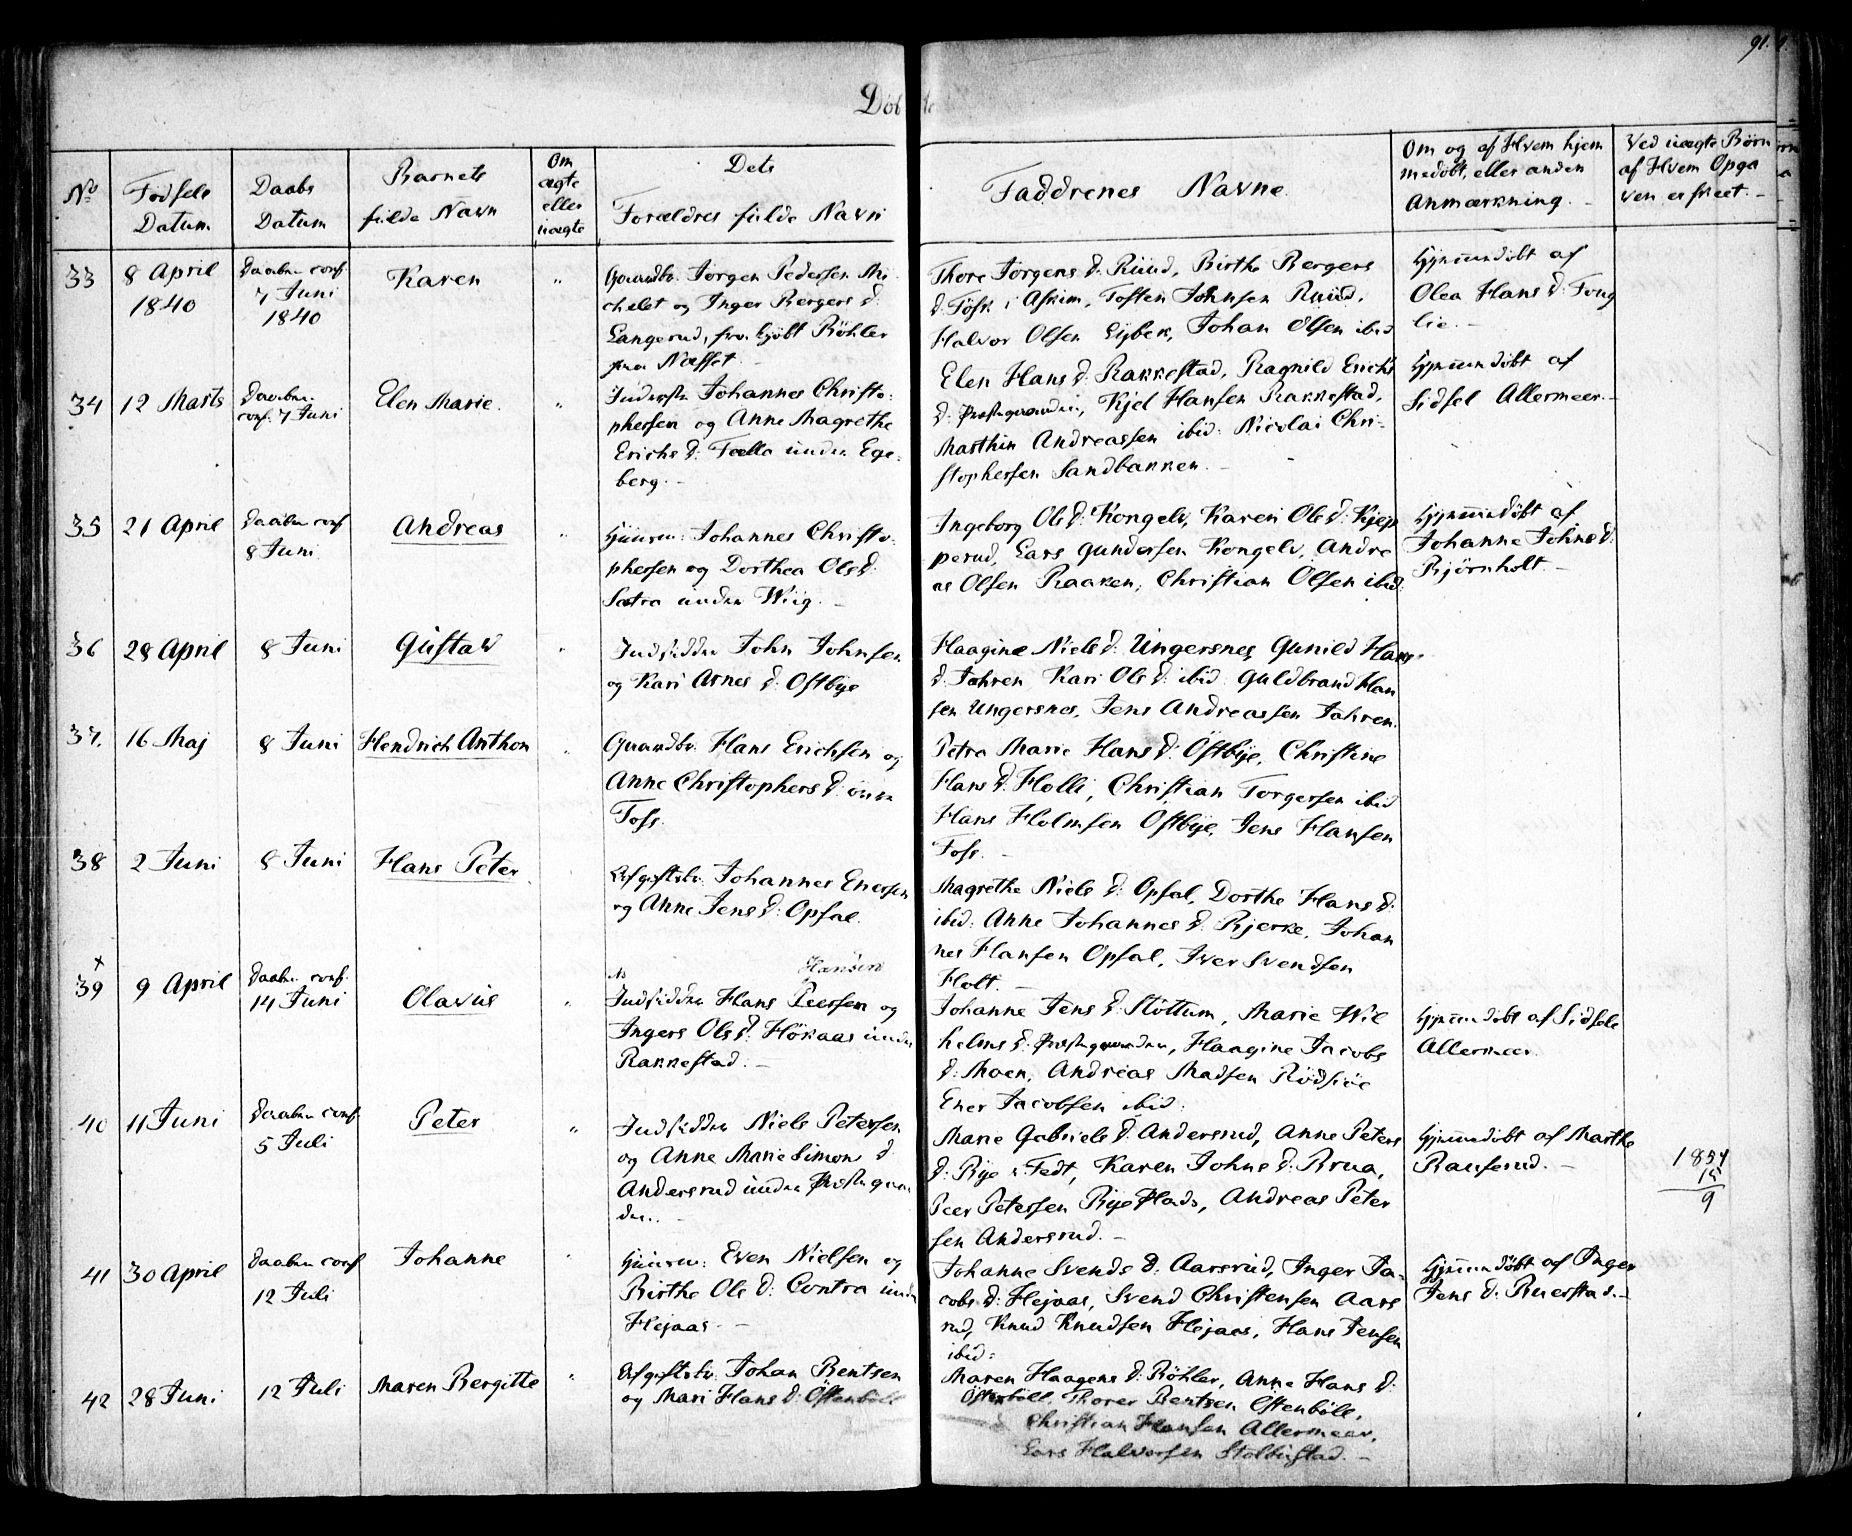 91.
Døbte
No
Fødsels
Datum.
Daabs
Datum
Barnets
fulde Navn
Om
ægte
eller
uægte
Dets
Forældres fulde Navn
Faddrenes Navne.
Om og af Hvem hjem
medøbt, eller anden
Anmærkning. -
Ved uægte Børn
af Hvem Opga
ven er skeet. -
33
8 April
1840
Daaben conf.
7 Juni
1840
Karen
"
Gaardbr. Jørgen Pedersen Mi
chelet og Inger Bergers d:
Langerud, frakjøbt Bøhler
fra Næsset. -
Thore Jørgens d: Ruud, Birthe Bergers
d: Foss i Askim, Tosten Johnsen Ruud,
Halvor Olsen Eybek, Johan Olsen ibid
Hjemmedøbt af
Olea Hans d: Fong
lie. -
34
12 Marts
Daaben
conf. 7 Juni
Elen Marie.
"
Inderste Johannes Christo:
phersen og Anne Magrethe
Erichs d: Taella under Ege:
berg. -
Elen Hans d: Rakkestad, Ragnild Erichs
d: Præstegaarden, Kjel Hansen Rakkestad,
Marthin Andreassen ibid: Nicolai Chri-
stophersen Sandbakken. -
Hjemmedøbt af
Sidsel Allermeer. -
35
21 April
Daaben conf.
8 Juni
Andreas
"
Huusm: Johannes Christo:
phersen og Dorthea Ols d:
Sætra under Wiig. -
Ingeborg Ols d: Kongelv, Karen Ols d: Kjep
perud, Lars Gundersen Kongelv, Andre
as Olsen Raaken, Christian Olsen ibid:
Hjemmedøbt af
Johanne Johns d:
Bjørnholt. -
36
28 April
8 Juni
Gustav
"
Indsidder John Johnsen
og Kari Arnes d: Ostbye
Haagine Niels d: Ungersnes, Gunild Hans
d: Jahren Kari Ols d: ibid. Guldbrand Han
sen Ungersnes, Jens Andreassen Jahren.
37.
16 Maj
8 Juni
Hendrich Anthon
"
Gaardbr. Hans Erichsen og
Anne Christophers d: øvre
Foss.
Petra Marie Hans d: Østbye, Christine
Hans d: Holli, Christian Torgersen ibid
Hans Holmsen Østbye, Jens Hansen
Foss. -
38
2 Juni
8 Juni
Hans Peter
Opsidder Johannes Enersen
og Anne Jens d: Opsal.
Magrethe Niels d: Opsal, Dorthe Hans d:
ibid: Anne Johannes d: Bjerke, Johan
nes Hansen Opsal, Iver Svendsen
Holt. -
x
39
9 April
Daaben conf.
14 Juni
Olavus
"
Hansen
Indsidder Hans Peersen og
Ingers Ols d: Høkaas under
Rakkestad. -
Johanne Jens d: Støttum, Marie Wil
helms d: Præstegaarden, Haagine Jacobs
d: Moen, Andreas Madsen Rødsiøe
Ener Jacobsen ibid:
Hjemmedøbt af Sidsele
Allermeer
40
11 Juni
Daaben conf.
5 Juli
Peter
"
Indsidder Niels Petersen
og Anne Marie Simons d:
Andersrud under Præstegaar
den. -
Marie Gabriels d: Andersrud, Anne Peters
d: Bye i Fedt, Karen Johns d: Brua,
Peer Petersen Byeplads, Andreas Peter
sen Andersrud. -
Hjemmedøbt af Marthe
Ramserud. -
1854
15
9
41
30 April
Daaben conf
12 Juli
Johanne
"
Huusm: Even Nielsen og
Birthe Ols d: Contra under
Hejaas. -
Johanne Svends d: Aarsrud, Inger Ja-
cobs d: Hejaas, Svend Christensen Aars
rud, Knud Knudsen Hejaas, Hans Jensen
ibid:
Hjemmedøbt af Inger
Jens d: Ruerstad. -
42
28 Juni
12 Juli
Maren Bergitte
"
Johan Bentsen
og Mari Hans d: Østenbøll
Maren Haagens d: Bøhler, Anne Hans d:
Østenbøll, Thorer Bentsen Østenbøll,
Christian Hansen Allermeer,
Lars Halvorsen Stolbustad. -